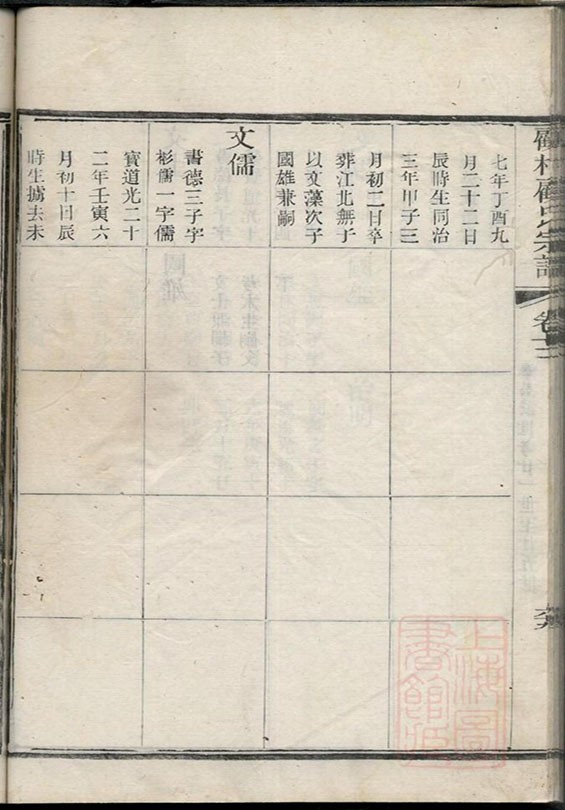 村顧氏宗譜
卷十
七年丁酉九
月二十二日
辰時生同治
三年甲子三
月初二日卒
葬江北無子
以文藻次子
國雄兼嗣
文儒
書德三子字
彬儒一字儒
寳道光二十
二年壬寅六
月初十日辰
時生擄去未
上海圖
書館